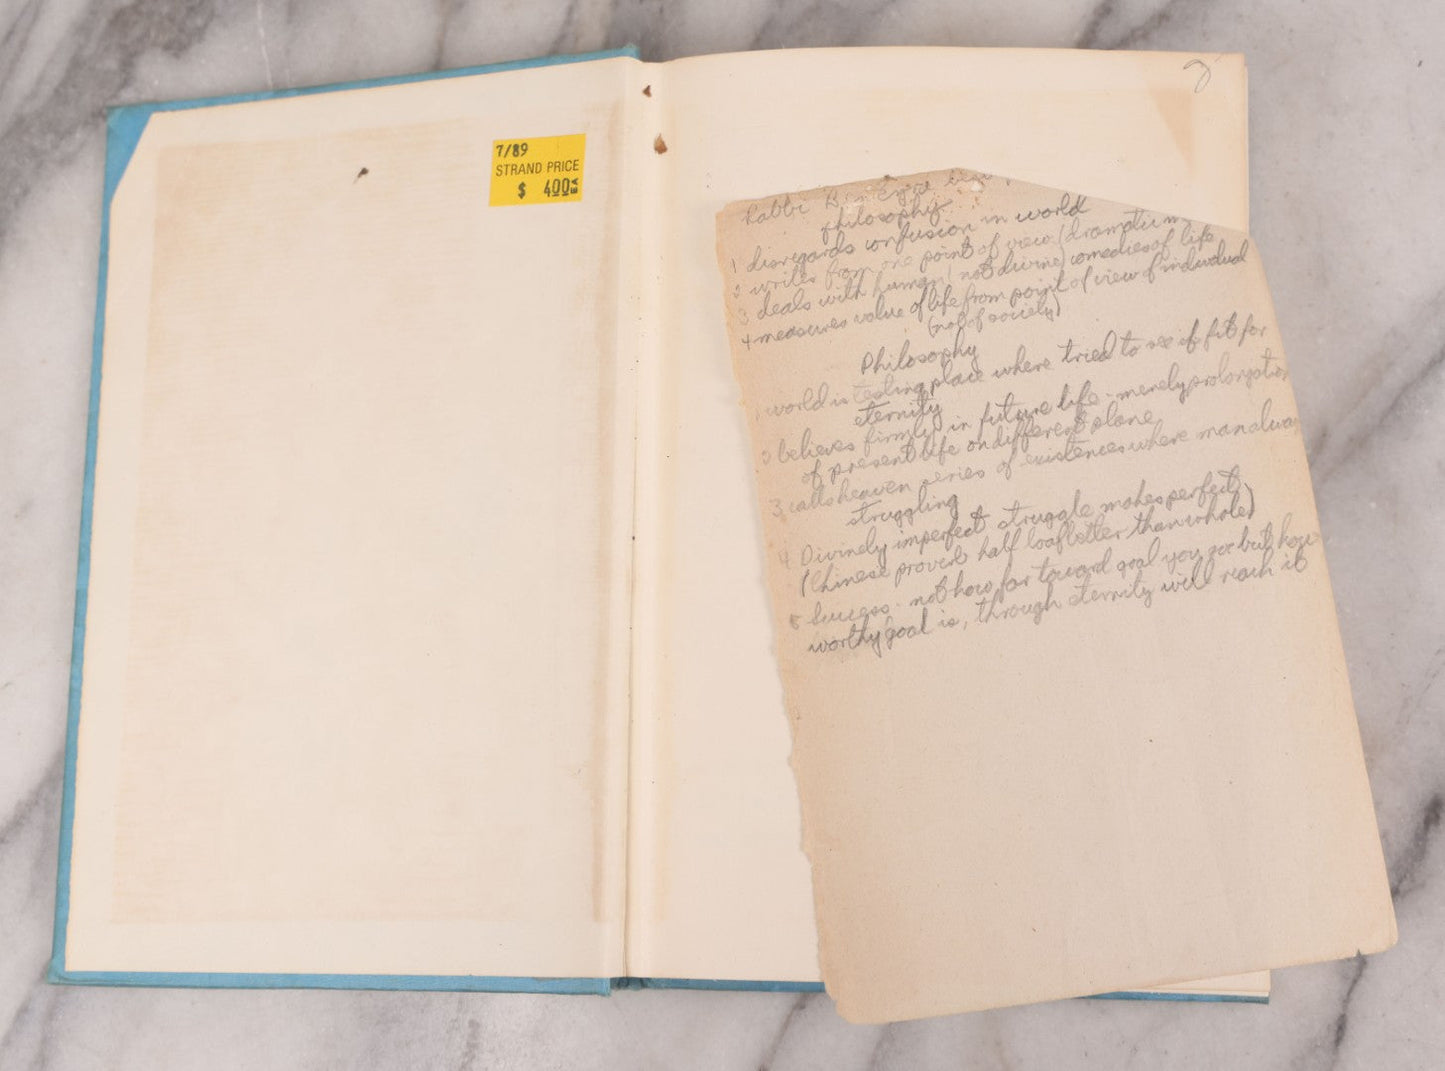 7/89
STRAND PRICE
$ 4.00 EA
Rabbi Ben Ezra
philosophy
1 disregards confusion in world
2 writes from one point of view (dramatic
3 deals with human (not divine) comedies of life
4 measures value of life from point of view of individual
(not of society)
Philosophy
1 world is testing place where tried to see if fit for
eternity
2 believes firmly in future life - merely prolongation
of present life on different plane
3 calls heaven series of existences where man alway
struggling
4 Divinely imperfect struggle makes perfect
(Chinese proverb half loaf better than whole)
5 Success - not how far toward goal you go but how
worthy goal is, through eternity will reach it